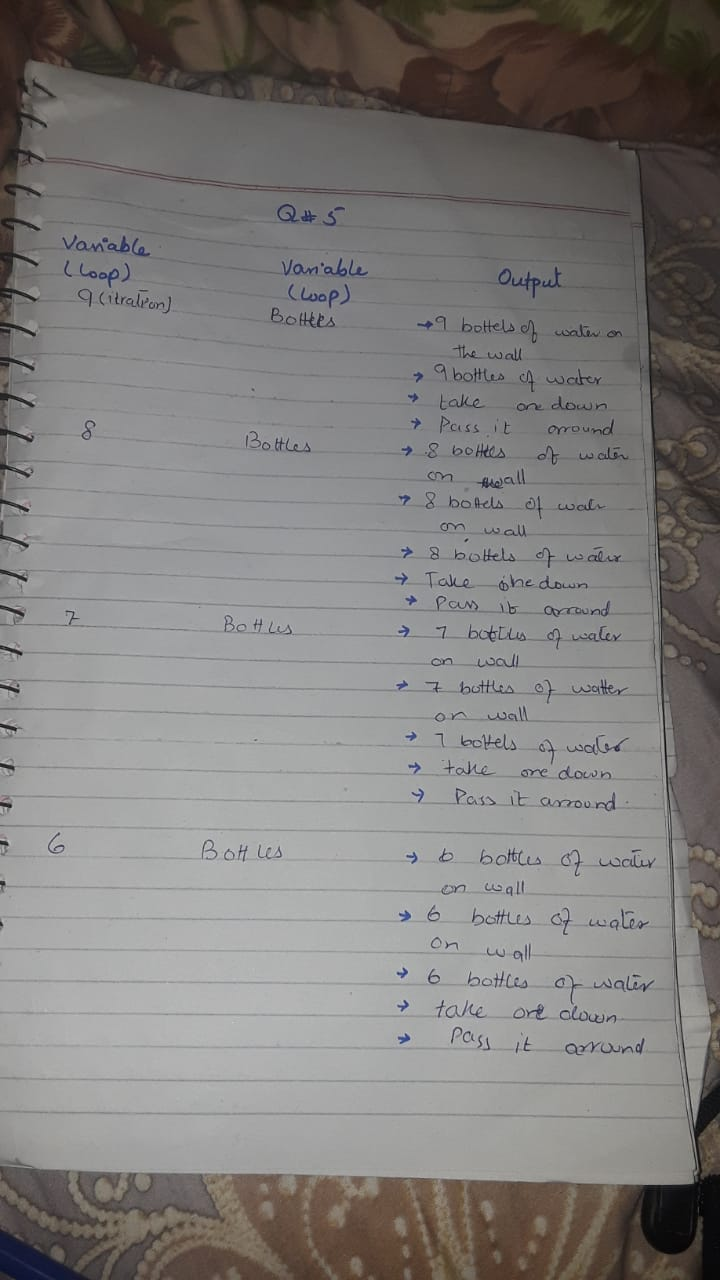 Q# 5
Variable
(Loop)
Variable
(Loop)
Output
9 (itration)
Bottles
→ 9 bottels of water on
the wall
→ 9 bottles of water
→ take one down
→ Pass it arround
8
Bottles
→ 8 bottles of water
on wall
→ 8 bottels of water
on wall
→ 8 bottels of water
→ Take one down
→ Pass it arround
7
Bottles
→ 7 bottles of water
on wall
→ 7 bottles of watter
on wall
→ 7 bottels of water
→ take one down
→ Pass it arround.
6
Bottles
→ 6 bottles of water
on wall
→ 6 bottles of water
on wall
→ 6 bottles of water
→ take one down
→ Pass it arround